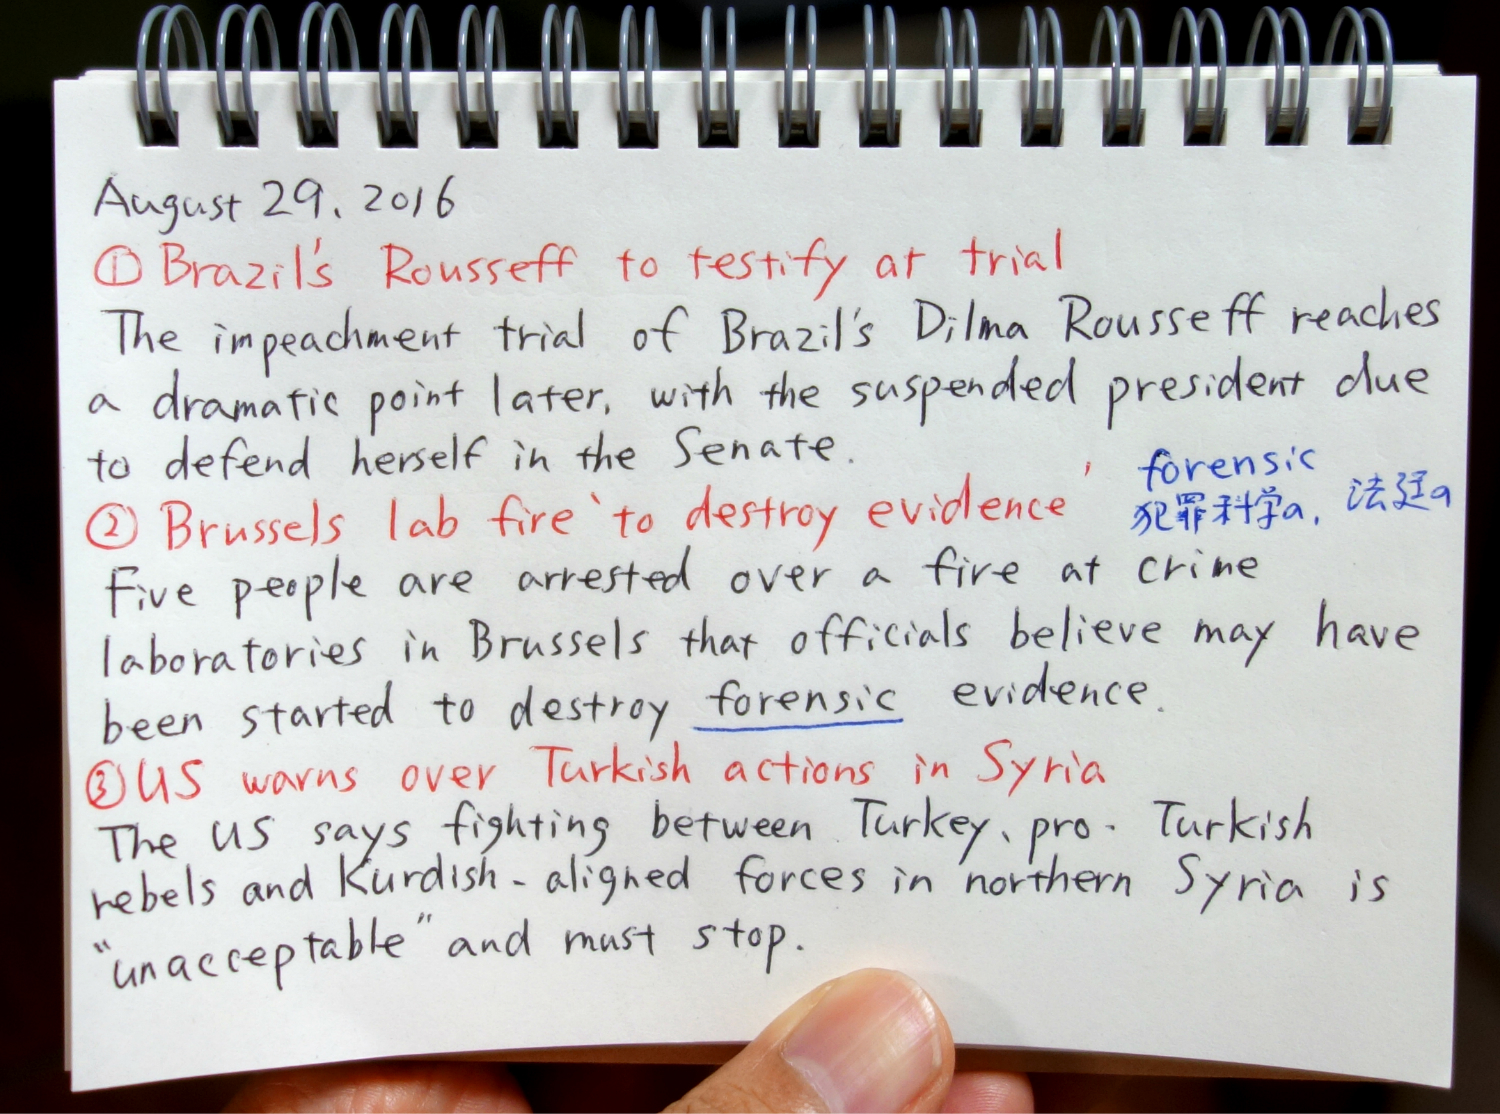 August 29, 2016
① Brazil's Rousseff to testify at trial
The impeachment trial of Brazil's Dilma Rousseff reaches
a dramatic point later, with the suspended president due
to defend herself in the Senate.
② Brussels lab fire 'to destroy evidence'
forensic
犯罪科学の, 法廷の
Five people are arrested over a fire at crime
laboratories in Brussels that officials believe may have
been started to destroy forensic evidence.
③ US warns over Turkish actions in Syria
The US says fighting between Turkey, pro-Turkish
rebels and Kurdish-aligned forces in northern Syria is
"unacceptable" and must stop.